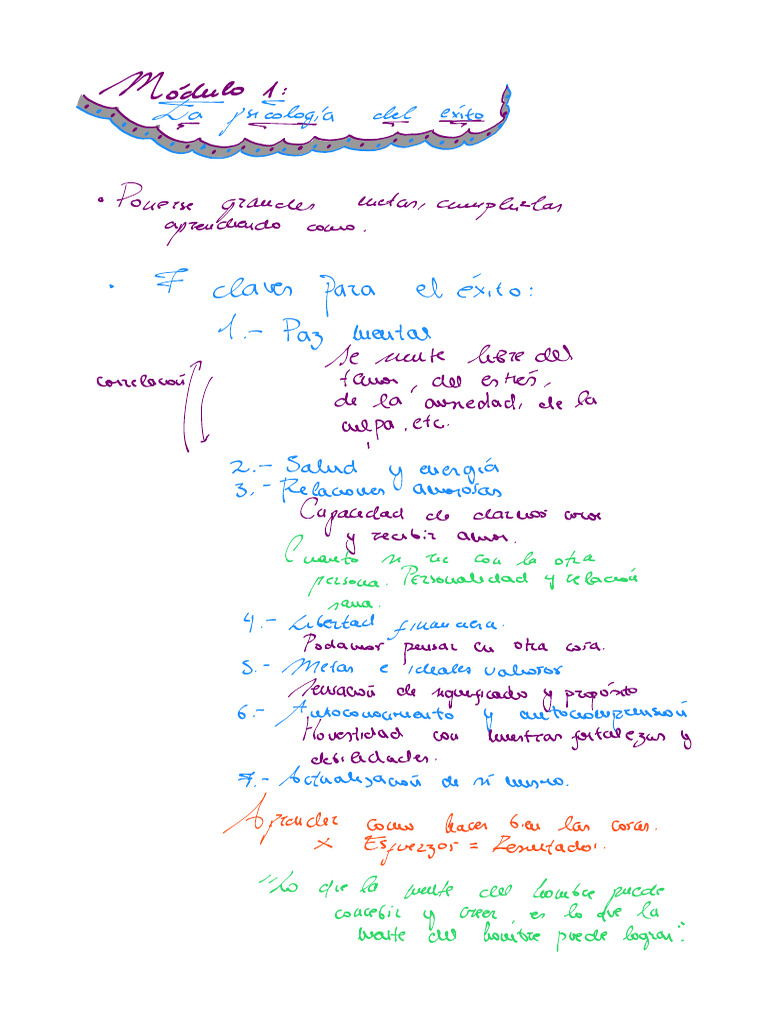 Módulo 1:
La psicología del éxito
• Ponerse grandes metas, cumplirlas
aprendiendo como.
• 7 claves para el éxito:
1.- Paz mental
Se siente libre del
temor, del estrés,
de la ansiedad, de la
culpa, etc.
correlación
2.- Salud y energía
3.- Relaciones amorosas
Capacidad de darnos amor
y recibir amor.
Cuanto se ríe con la otra
persona. Personalidad y relación
sana.
4.- Libertad financiera.
Podamos pensar en otra cosa.
5.- Metas e ideales valiosos
Sensación de significado y propósito
6.- Autoconocimiento y autocomprensión
Honestidad con nuestras fortalezas y
debilidades.
7.- Actualización de sí mismo.
Aprender como hacer bien las cosas.
x Esfuerzos = Resultados.
"Lo que la mente del hombre puede
concebir y creer, es lo que la
mente del hombre puede lograr".